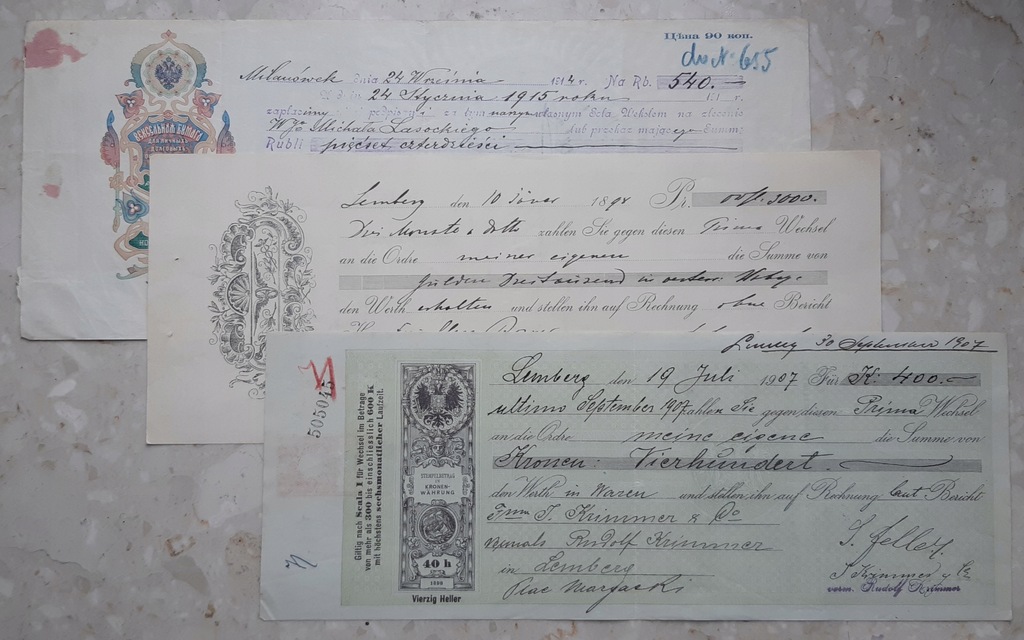 Цѣна 90 коп.
do № 615
Milanówek dnia 24 Września 1914 r. Na Rb. 540.—
24 Stycznia 1915 roku
zapłacimy własnym Sola Wekslem na zlecenie
WJo Michała Lasockiego lub przekaz mającego Summę
Rubli pięćset czterdzieści
ВЕКСЕЛЬНАЯ БУМАГА
ДЛЯ ЛИЧНЫХЪ
ДОЛГОВЫХЪ
Lemberg den 10 189 Pr. 3000.—
Drei Monate a dato zahlen Sie gegen diesen Prima Wechsel
an die Ordre meiner eigenen die Summe von
Gulden Dreitausend in
den Werth erhalten und stellen ihn auf Rechnung ohne Bericht
30 September 1907
505045
Giltig nach Scala I für Wechsel im Betrage
von mehr als 300 bis einschliesslich 600 K
mit höchstens sechsmonatlicher Laufzeit.
STEMPELBETRAG
IN
KRONEN-
WÄHRUNG
40 h
1898
Vierzig Heller
Lemberg den 19 Juli 1907 Für K: 400.—
ultimo September 1907 zahlen Sie gegen diesen Prima Wechsel
an die Ordre meine eigene die Summe von
Kronen: Vierhundert.
den Werth in Waren und stellen ihn auf Rechnung laut Bericht
Firma J. Krimmer & Co
vormals Rudolf Krimmer
in Lemberg
Plac Maryacki
S. Feller
J Krimmer & Co
vorm. Rudolf Krimmer